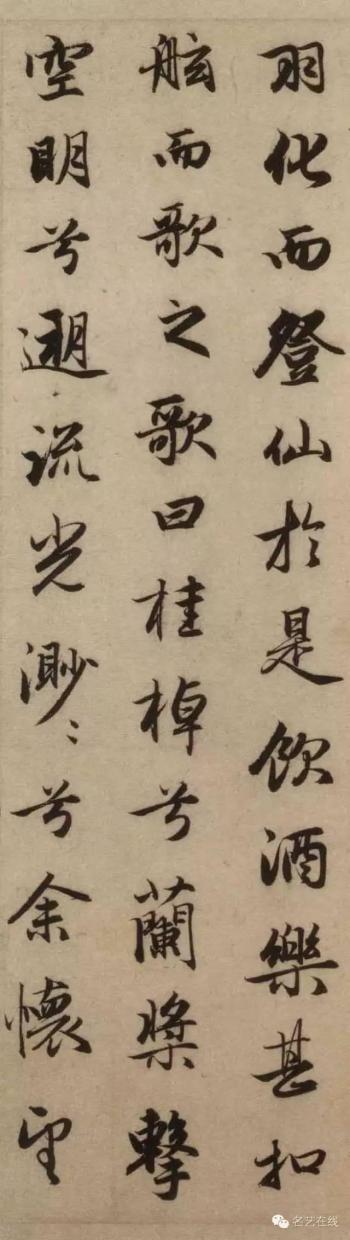 羽化而登仙於是飲酒樂甚扣
舷而歌之歌曰桂棹兮蘭槳擊
空明兮遡流光渺〻兮余懷望
名艺在线